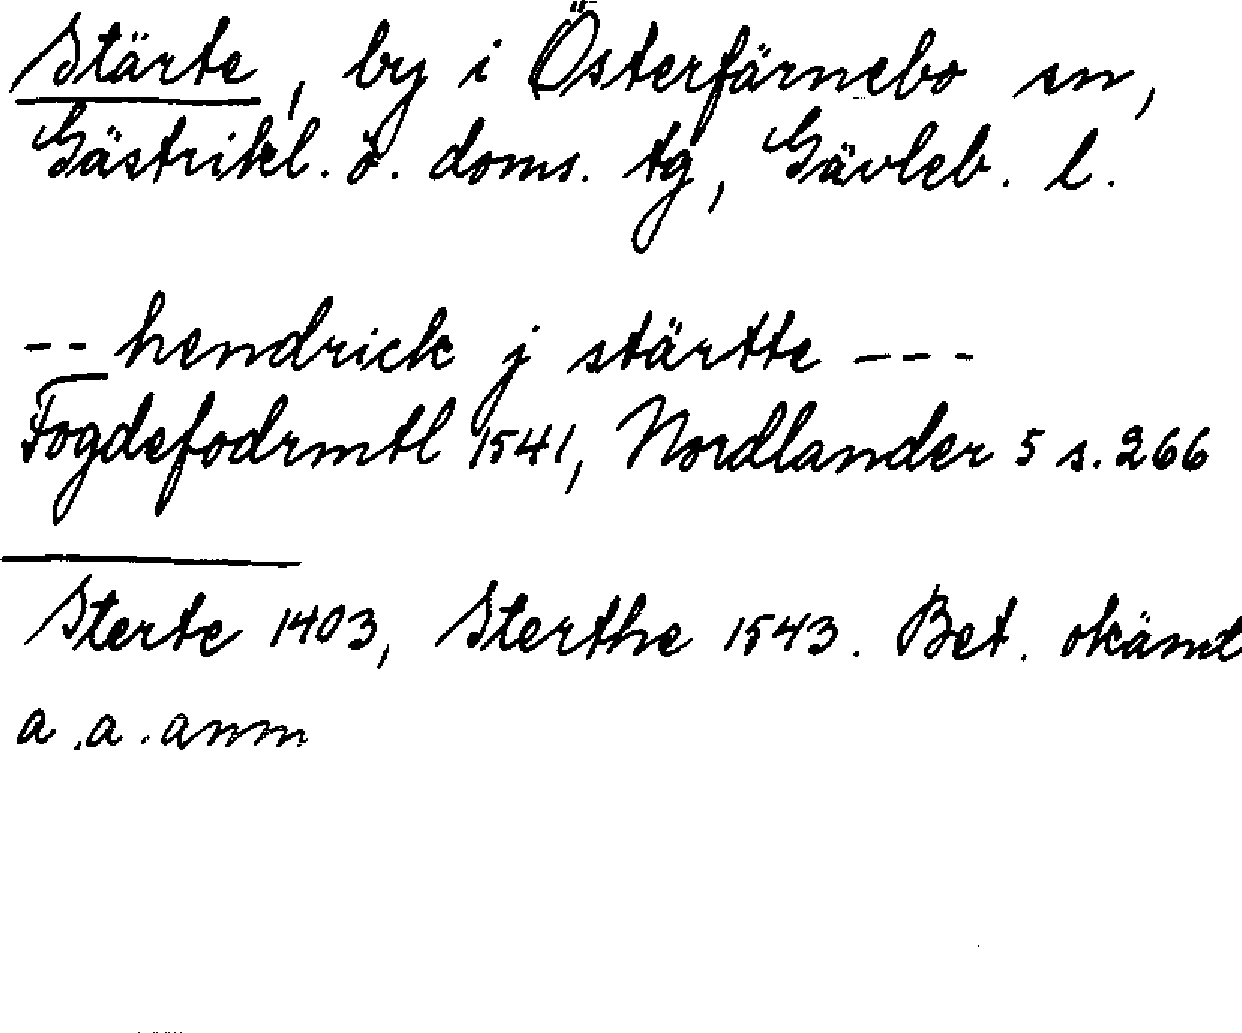 Stärte, by i Österfärnebo sn,
Gästrikl. ö. doms. tg, Gävleb. l.
-- hendrick j stärtte ---
Fogdefodrmtl 1541, Nordlander 5 s. 266
Sterte 1403, Sterthe 1543. Bet. okänd
a.a. anm